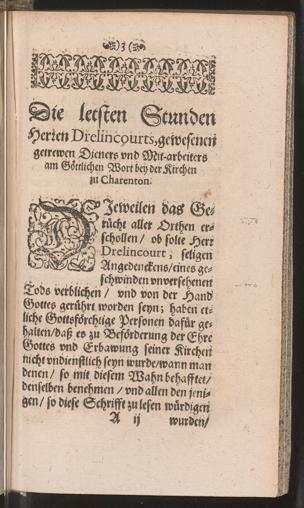 3
Die letsten Stunden
Herren Drelincourts, gewesenen
getrewen Dieners vnd Mit-arbeiters
am Göttlichen Wort bey der Kirchen
zu Charenton.
DJeweilen das Ge-
rücht aller Orthen er-
schollen / ob solte Herr
Drelincourt, seligen
Angedenckens / eines ge-
schwinden vnversehenen
Tods verblichen / vnd von der Hand
Gottes gerührt worden seyn; haben et-
liche Gottsförchtige Personen dafür ge-
halten / daß es zu Beförderung der Ehre
Gottes vnd Erbawung seiner Kirchen
nicht vndienstlich seyn wurde / wann man
denen / so mit diesem Wahn behafftet /
denselben benehmen / vnd allen den jeni-
gen / so diese Schrifft zu lesen würdigen
A ij wurden /